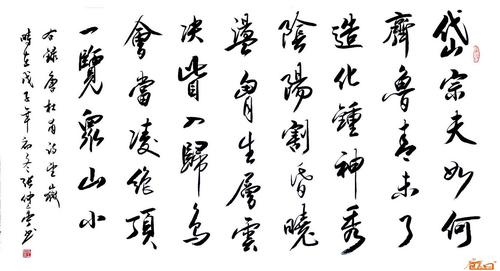 岱宗夫如何
齊魯青未了
造化鍾神秀
陰陽割昏曉
盪胷生層雲
決眥入歸鳥
會當凌絶頂
一覽眾山小
右録唐杜甫詩望嶽
時在戊子年初冬張仲雲書